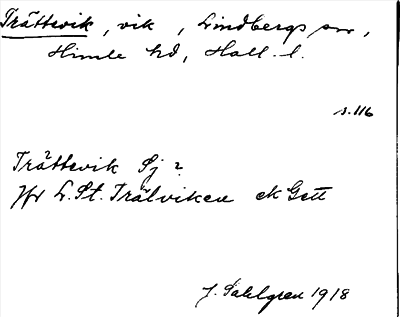 Trättevik, vik, Lindbergs sn,
Himle hd, Hall. l.
s. 116
Trättevik Sj ?
Jfr L. St. Trälviken ek Gett
J. Sahlgren 1918